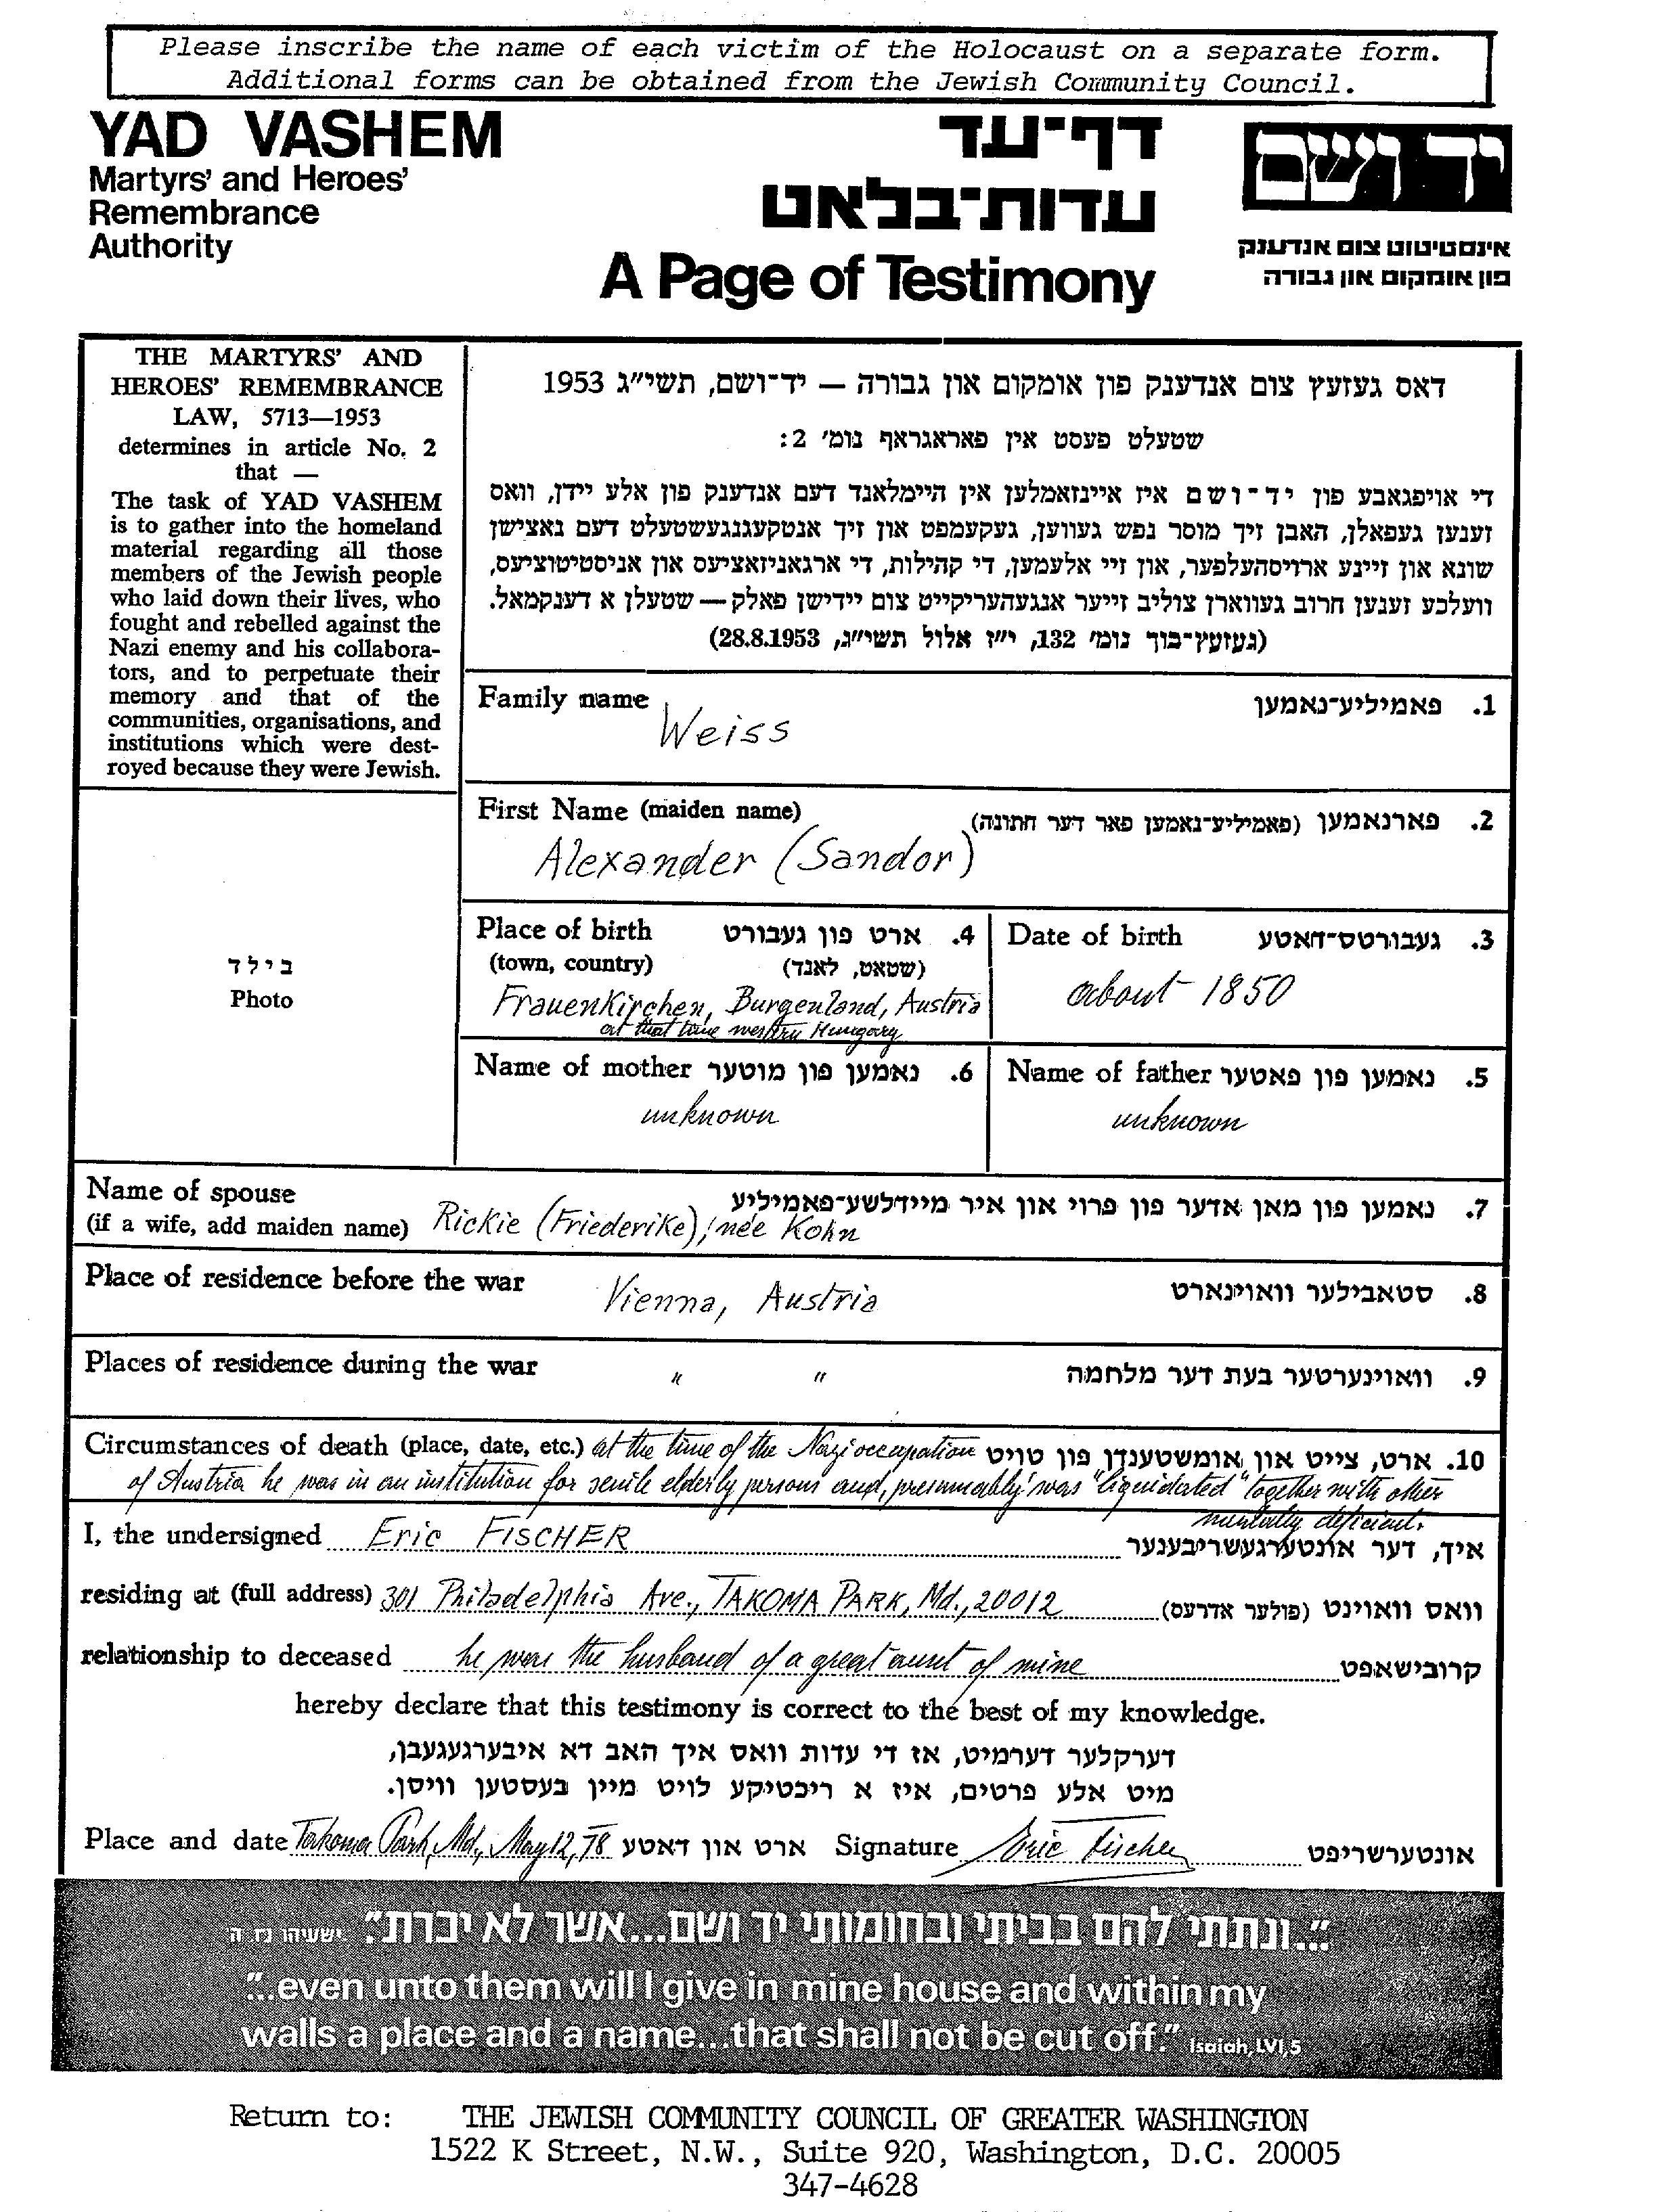 Please inscribe the name of each victim of the Holocaust on a separate form.
Additional forms can be obtained from the Jewish Community Council.
YAD VASHEM
Martyrs' and Heroes'
Remembrance
Authority
דף־עד
עדות־בלאט
A Page of Testimony
יד ושם
אינסטיטוט צום אנדענק
פון אומקום און גבורה
THE MARTYRS' AND
HEROES' REMEMBRANCE
LAW, 5713—1953
determines in article No. 2
that —
The task of YAD VASHEM
is to gather into the homeland
material regarding all those
members of the Jewish people
who laid down their lives, who
fought and rebelled against the
Nazi enemy and his collabora-
tors, and to perpetuate their
memory and that of the
communities, organisations, and
institutions which were dest-
royed because they were Jewish.
דאס געזעץ צום אנדענק פון אומקום און גבורה — יד־ושם, תשי״ג 1953
שטעלט פעסט אין פאראגראף נומ׳ 2:
די אויפגאבע פון יד־ושם איז איינזאמלען אין היימלאנד דעם אנדענק פון אלע יידן, וואס
זענען געפאלן, האבן זיך מוסר נפש געווען, געקעמפט און זיך אנטקעגנגעשטעלט דעם נאצישן
שונא און זיינע ארויסהעלפער, און זיי אלעמען, די קהילות, די ארגאניזאציעס און אניסטיטוציעס,
וועלכע זענען חרוב געווארן צוליב זייער אנגעהעריקייט צום יידישן פאלק — שטעלן א דענקמאל.
(געזעץ־בוך נומ׳ 132, י״ז אלול תשי״ג, 28.8.1953)
Family name פאמיליע־נאמען .1
Weiss
First Name (maiden name) פארנאמען (פאמיליע־נאמען פאר דער חתונה) .2
Alexander (Sandor)
Place of birth ארט פון געבורט .4
(town, country) (שטאט, לאנד)
Frauenkirchen, Burgenland, Austria
at that time western Hungary
Date of birth געבורטס־דאטע .3
about 1850
בילד
Photo
Name of mother נאמען פון מוטער .6
unknown
Name of father נאמען פון פאטער .5
unknown
Name of spouse נאמען פון מאן אדער פון פרוי און איר מיידלשע־פאמיליע .7
(if a wife, add maiden name) Rickie (Friederike), née Kohn
Place of residence before the war Vienna, Austria סטאבילער וואוינארט .8
Places of residence during the war " " וואוינערטער בעת דער מלחמה .9
Circumstances of death (place, date, etc.) at the time of the Nazi occupation ארט, צייט און אומשטענדן פון טויט .10
of Austria he was in an institution for senile elderly persons and, presumably was "liquidated" together with other
mentally deficient.
I, the undersigned Eric FISCHER איך, דער אונטערגעשריבענער
residing at (full address) 301 Philadelphia Ave., TAKOMA PARK, Md., 20012 וואס וואוינט (פולער אדרעס)
relationship to deceased he was the husband of a great aunt of mine קרובישאפט
hereby declare that this testimony is correct to the best of my knowledge.
דערקלער דערמיט, אז די עדות וואס איך האב דא איבערגעגעבן,
מיט אלע פרטים, איז א ריכטיקע לויט מיין בעסטען וויסן.
Place and date Takoma Park, Md., May 12, 78 ארט און דאטע Signature Eric Fischer אונטערשריפט
"...ונתתי להם בביתי ובחומותי יד ושם...אשר לא יכרת". ישעיהו נו ה
"...even unto them will I give in mine house and within my
walls a place and a name...that shall not be cut off." Isaiah, LVI,5
Return to: THE JEWISH COMMUNITY COUNCIL OF GREATER WASHINGTON
1522 K Street, N.W., Suite 920, Washington, D.C. 20005
347-4628